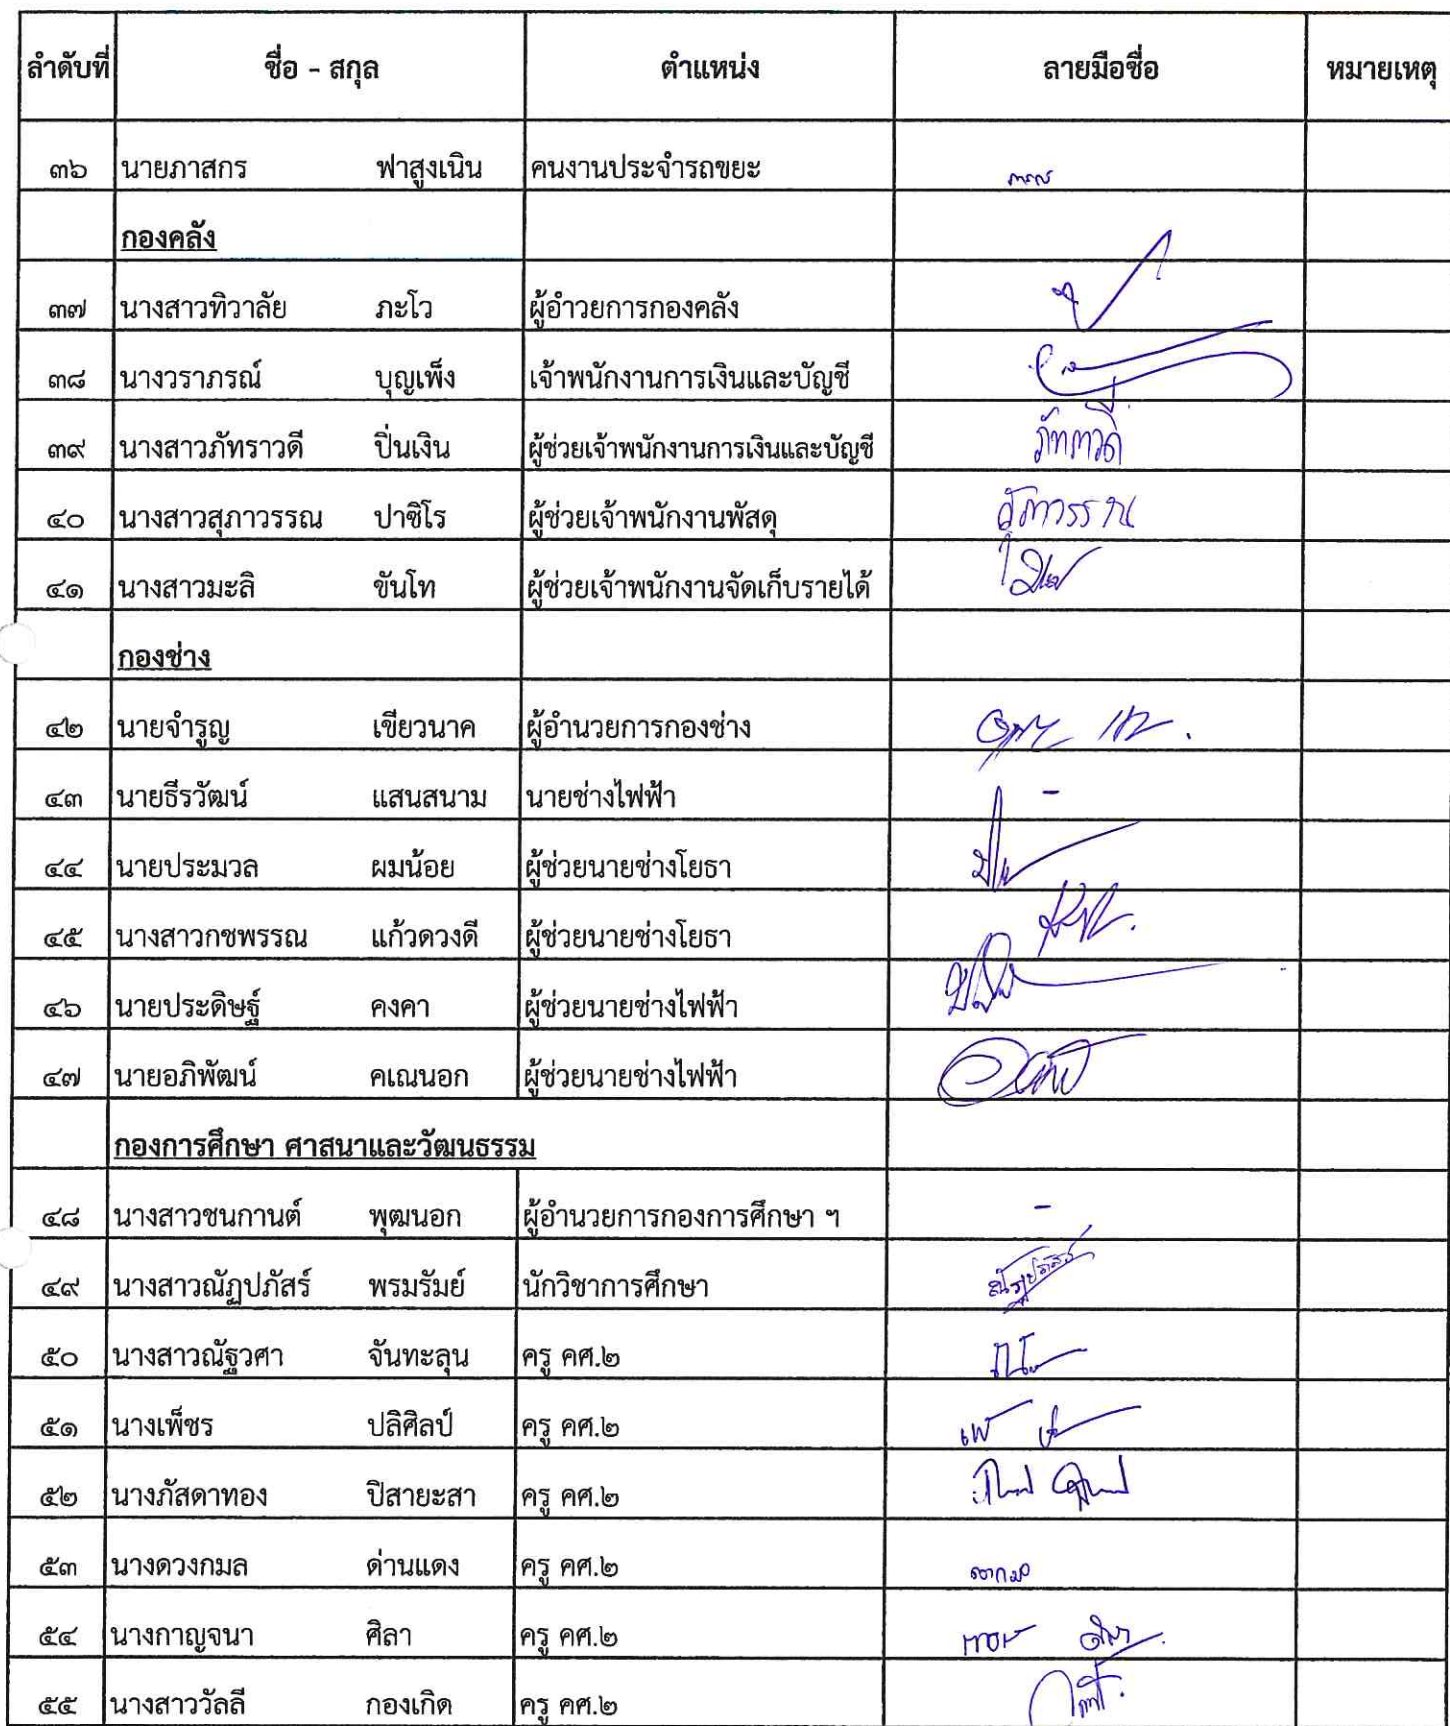 ลำดับที่ ชื่อ - สกุล ตำแหน่ง ลายมือชื่อ หมายเหตุ
๓๖ นายภาสกร ฟาสูงเนิน คนงานประจำรถขยะ
กองคลัง
๓๗ นางสาวทิวาลัย ภะโว ผู้อำวยการกองคลัง
๓๘ นางวราภรณ์ บุญเพ็ง เจ้าพนักงานการเงินและบัญชี
๓๙ นางสาวภัทราวดี ปิ่นเงิน ผู้ช่วยเจ้าพนักงานการเงินและบัญชี ภัทราวดี
๔๐ นางสาวสุภาวรรณ ปาซิโร ผู้ช่วยเจ้าพนักงานพัสดุ สุภาวรรณ
๔๑ นางสาวมะลิ ขันโท ผู้ช่วยเจ้าพนักงานจัดเก็บรายได้
กองช่าง
๔๒ นายจำรูญ เขียวนาค ผู้อำนวยการกองช่าง
๔๓ นายธีรวัฒน์ แสนสนาม นายช่างไฟฟ้า -
๔๔ นายประมวล ผมน้อย ผู้ช่วยนายช่างโยธา
๔๕ นางสาวกชพรรณ แก้วดวงดี ผู้ช่วยนายช่างโยธา
๔๖ นายประดิษฐ์ คงคา ผู้ช่วยนายช่างไฟฟ้า
๔๗ นายอภิพัฒน์ คเณนอก ผู้ช่วยนายช่างไฟฟ้า
กองการศึกษา ศาสนาและวัฒนธรรม
๔๘ นางสาวชนกานต์ พุฒนอก ผู้อำนวยการกองการศึกษา ฯ -
๔๙ นางสาวณัฏปภัสร์ พรมรัมย์ นักวิชาการศึกษา
๕๐ นางสาวณัฐวศา จันทะลุน ครู คศ.๒
๕๑ นางเพ็ชร ปลิศิลป์ ครู คศ.๒
๕๒ นางภัสดาทอง ปิสายะสา ครู คศ.๒
๕๓ นางดวงกมล ด่านแดง ครู คศ.๒
๕๔ นางกาญจนา ศิลา ครู คศ.๒
๕๕ นางสาววัลลี กองเกิด ครู คศ.๒